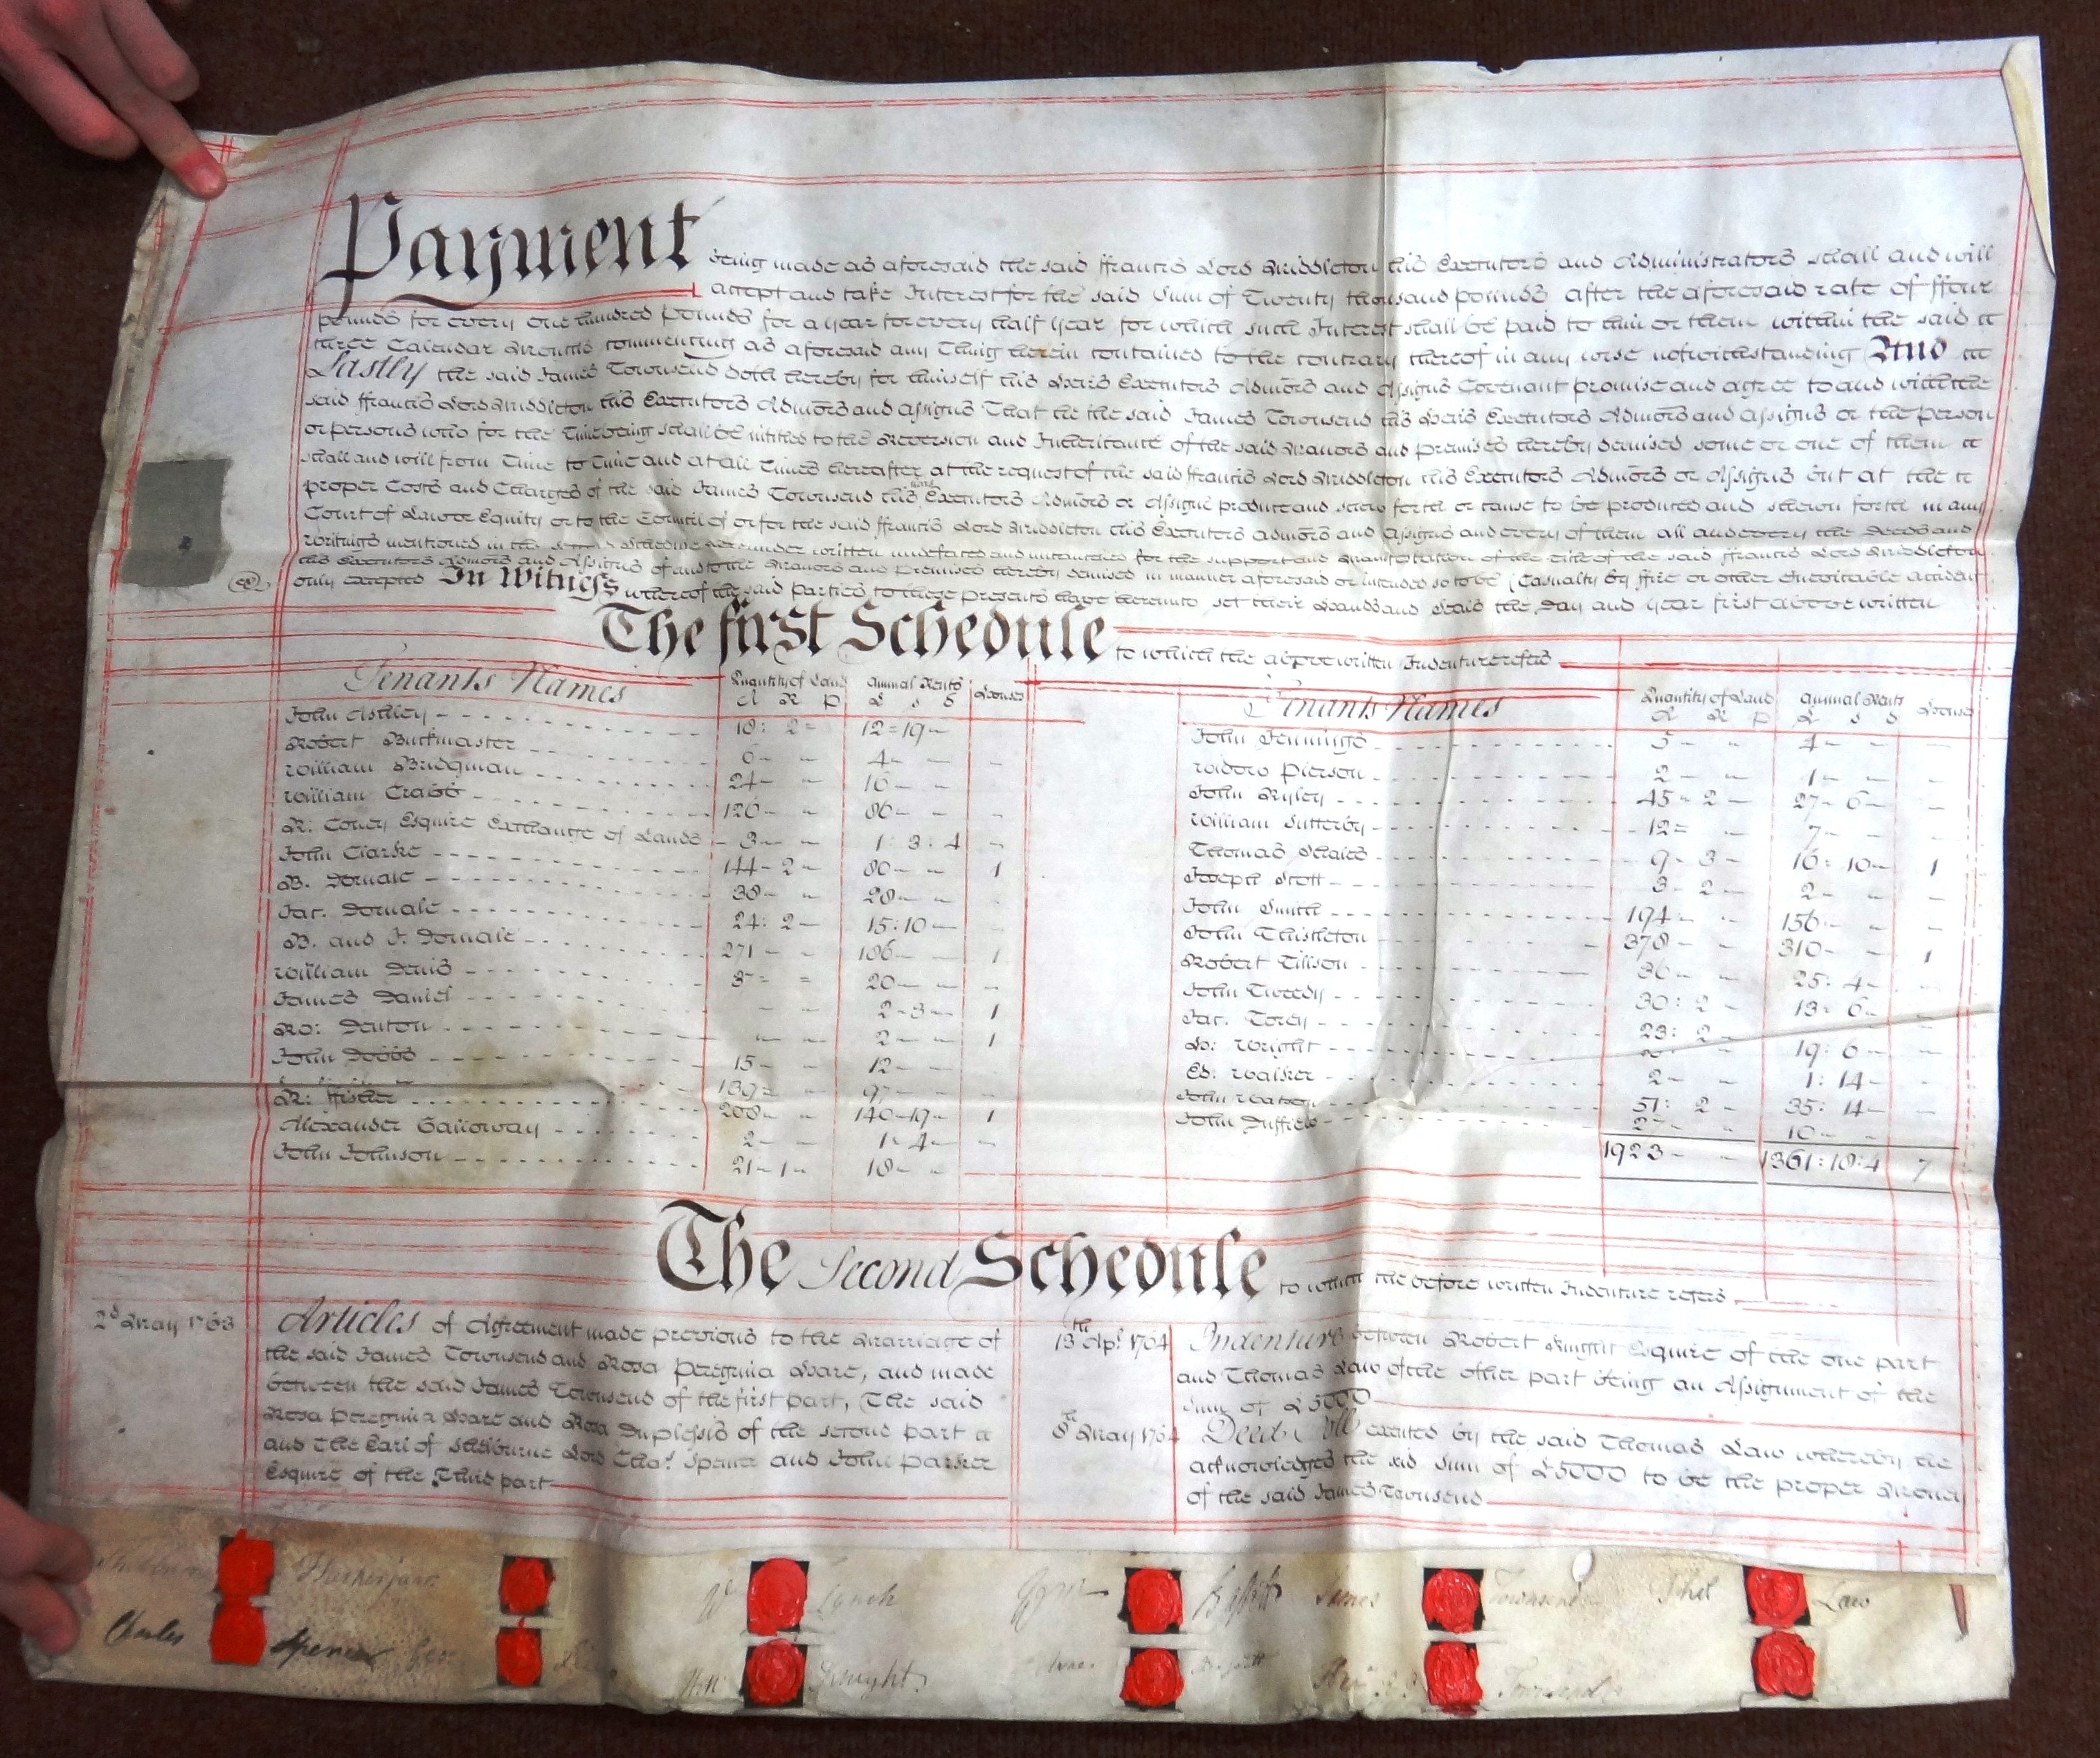 Payment being made as aforesaid the said ffrancis Lord Middleton his Executors and Administrators shall and will
accept and take Interest for the said Sum of Twenty thousand pounds after the aforesaid rate of ffour
pounds for every one hundred pounds for a year for every half Year for which such Interest shall be paid to him or them within the said
three Calendar Months commencing as aforesaid any Thing herein contained to the contrary thereof in any wise notwithstanding And
Lastly the said James Townsend doth hereby for himself his Heirs Executors Admors and Assigns Covenant promise and agree to and with the
said ffrancis Lord Middleton his Executors Admors and Assigns That he the said James Townsend his Heirs Executors Admors and Assigns or the person
or persons who for the Time being shall be intitled to the Reversion and Inheritance of the said Manors and premises hereby demised some or one of them
shall and will from Time to Time and at all Times hereafter at the request of the said ffrancis Lord Middleton his Executors Admors or Assigns but at the
proper Costs and Charges of the said James Townsend his Heirs Executors Admors or Assigns produce and shew forth or cause to be produced and shewn forth in any
Court of Law or Equity or to the Council of or for the said ffrancis Lord Middleton his Executors Admors and Assigns and every of them all and every the Deeds and
Writings mentioned in the Second Schedule hereunder written undefaced and uncancelled for the support and Manifestation of the title of the said ffrancis Lord Middleton
his Executors Admors and Assigns of and to the Manors and Premises hereby demised in manner aforesaid or intended so to be (Casualty by ffire or other Inevitable accident
only excepted In Witness whereof the said Parties to these presents have hereunto set their Hands and Seals the Day and Year first above written
The first Schedule to which the above written Indenture refers
Tenants Names Quantity of Land Annual Rents Houses
A R P £ s d
John Ashley 18: 2 12=19
Robert Buckmaster 6 4
William Bridgman 24 16
William Crabb 126 86
R: Coney Esquire Exchange of Lands 3 1: 3: 4
John Clarke 144 2 80 1
B. Dornale 38 28
Jar. Dornale 24: 2 15:10
B. and J. Dornale 271 186 1
William Denis 37 20
James Daniel 2 3 1
Ro: Denton 2 1
John Dobbs 15 12
139 97
R: ffisher 208 140-19 1
Alexander Galloway 2 1 4
John Johnson 21-1 18
Tenants Names Quantity of Land Annual Rents Houses
A R P £ s d
John Jennings 5 4
Widow Pierson 2 1
John Ryley 45 2 27 6
William Sutterby 12 7
Thomas Scales 9 3 16: 10 1
Joseph Scott 3 2 2
John Smith 194 156
John Thistleton 378 310 1
Robert Tillson 36 25: 4
John Tweedy 30: 2 13 6
Jar. Torey 23: 2 19: 6
H: Wright
Ed: Walker 2 1: 14
John Watson 51: 2 35: 14
John Duffield 2 10
1923 1361:18:4 7
The Second Schedule to which the before written Indenture refers
2d May 1763 Articles of Agreement made previous to the Marriage of
the said James Townsend and Rosa Peregrina Hare, and made
between the said James Townsend of the first part, The said
Rosa Peregrina Hare and Rosa Duplessis of the second part
and The Earl of Shelburne Lord Chas. Spencer and John Parker
Esquire of the Third part
13th Apl. 1764 Indenture between Robert Knight Esquire of the one part
and Thomas Law of the other part being an Assignment of the
Sum of £5000
8th May 1764 Deed Poll executed by the said Thomas Law whereby he
acknowledged the sd Sum of £5000 to be the proper Money
of the said James Townsend
Shelburne
W Lynch
James Townsend
Thos Law
Charles Spencer
Knight
Townsend